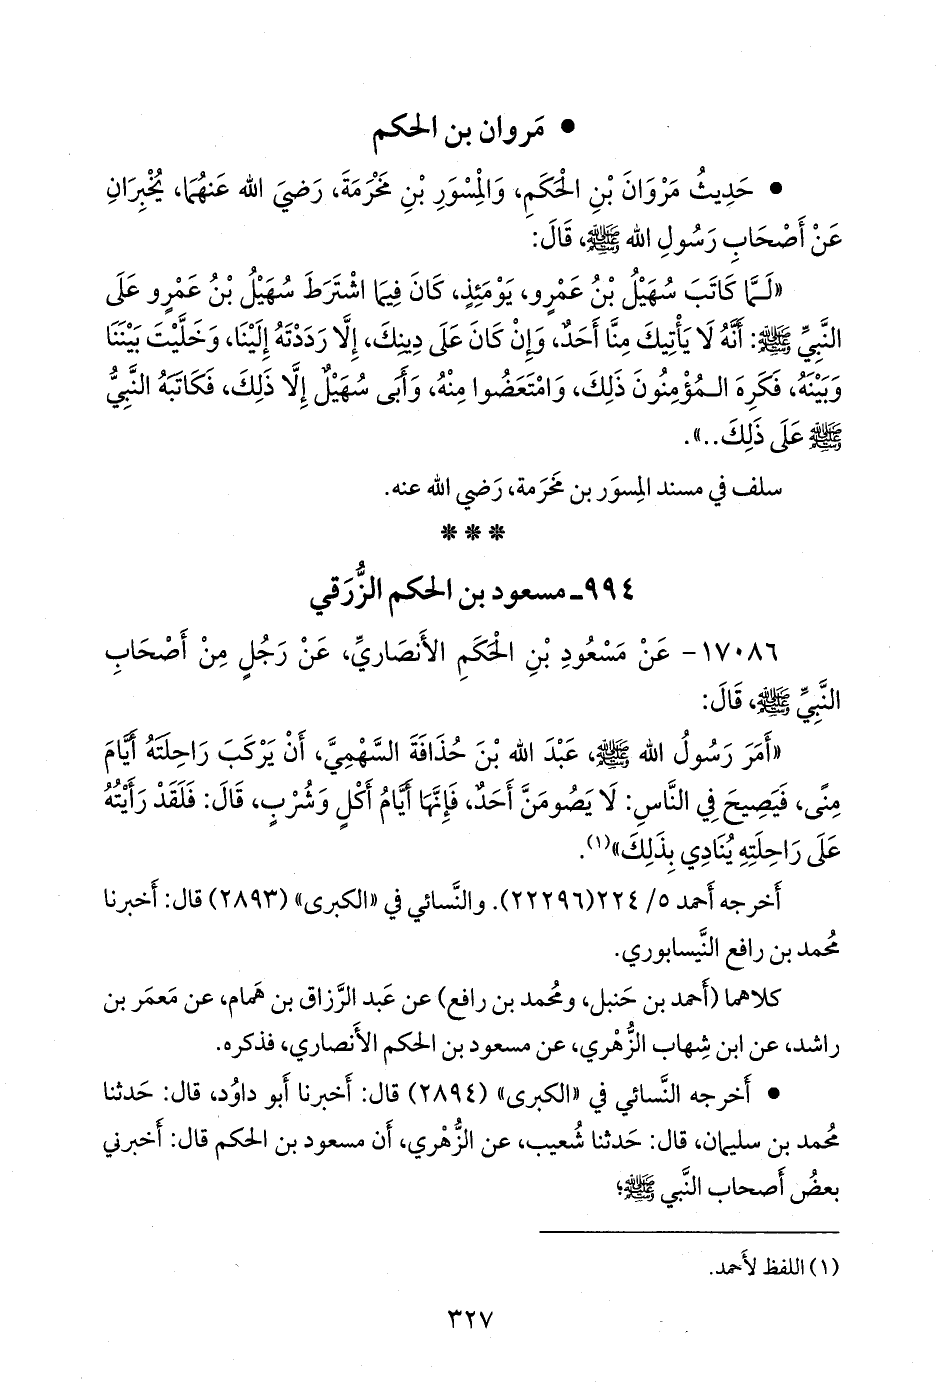 • مَروان بن الحكم
• حَدِيثُ مَرْوَانَ بْنِ الْحَكَمِ، وَالْمِسْوَرِ بْنِ مَخْرَمَةَ، رَضِيَ الله عَنْهُمَا، يُخْبِرَانِ
عَنْ أَصْحَابِ رَسُولِ الله ﷺ، قَالَ:
«لَـمَّا كَاتَبَ سُهَيْلُ بْنُ عَمْرٍو، يَوْمَئِذٍ، كَانَ فِيمَا اشْتَرَطَ سُهَيْلُ بْنُ عَمْرٍو عَلَى
النَّبِيِّ ﷺ: أَنَّهُ لَا يَأْتِيكَ مِنَّا أَحَدٌ، وَإِنْ كَانَ عَلَى دِينِكَ، إِلَّا رَدَدْتَهُ إِلَيْنَا، وَخَلَّيْتَ بَيْنَنَا
وَبَيْنَهُ، فَكَرِهَ الـمُؤْمِنُونَ ذَلِكَ، وَامْتَعَضُوا مِنْهُ، وَأَبَى سُهَيْلٌ إِلَّا ذَلِكَ، فَكَاتَبَهُ النَّبِيُّ
ﷺ عَلَى ذَلِكَ..».
سلف في مسند المِسوَر بن مَخرَمة، رَضي الله عنه.
* * *
٩٩٤ـ مسعود بن الحكم الزُّرَقي
١٧٠٨٦- عَنْ مَسْعُودِ بْنِ الْحَكَمِ الأَنصَاريِّ، عَنْ رَجُلٍ مِنْ أَصْحَابِ
النَّبِيِّ ﷺ، قَالَ:
«أَمَرَ رَسُولُ الله ﷺ، عَبْدَ الله بْنَ حُذَافَةَ السَّهْمِيَّ، أَنْ يَرْكَبَ رَاحِلَتَهُ أَيَّامَ
مِنًى، فَيَصِيحَ فِي النَّاسِ: لَا يَصُومَنَّ أَحَدٌ، فَإِنَّهَا أَيَّامُ أَكْلٍ وَشُرْبٍ، قَالَ: فَلَقَدْ رَأَيْتُهُ
عَلَى رَاحِلَتِهِ يُنَادِي بِذَلِكَ»(١).
أَخرجه أَحمد ٥/ ٢٢٤(٢٢٢٩٦). والنَّسائي في «الكبرى» (٢٨٩٣) قال: أَخبرنا
مُحمد بن رافع النَّيسابوري.
كلاهما (أَحمد بن حَنبل، ومُحمد بن رافع) عن عَبد الرَّزاق بن هَمام، عن مَعمَر بن
راشد، عن ابن شِهاب الزُّهْري، عن مسعود بن الحكم الأَنصاري، فذكره.
• أَخرجه النَّسائي في «الكبرى» (٢٨٩٤) قال: أَخبرنا أَبو داوُد، قال: حَدثنا
مُحمد بن سليمان، قال: حَدثنا شُعيب، عن الزُّهْري، أَن مسعود بن الحكم قال: أَخبرني
بعضُ أَصحاب النَّبي ﷺ؛
(١) اللفظ لأَحمد.
٣٢٧